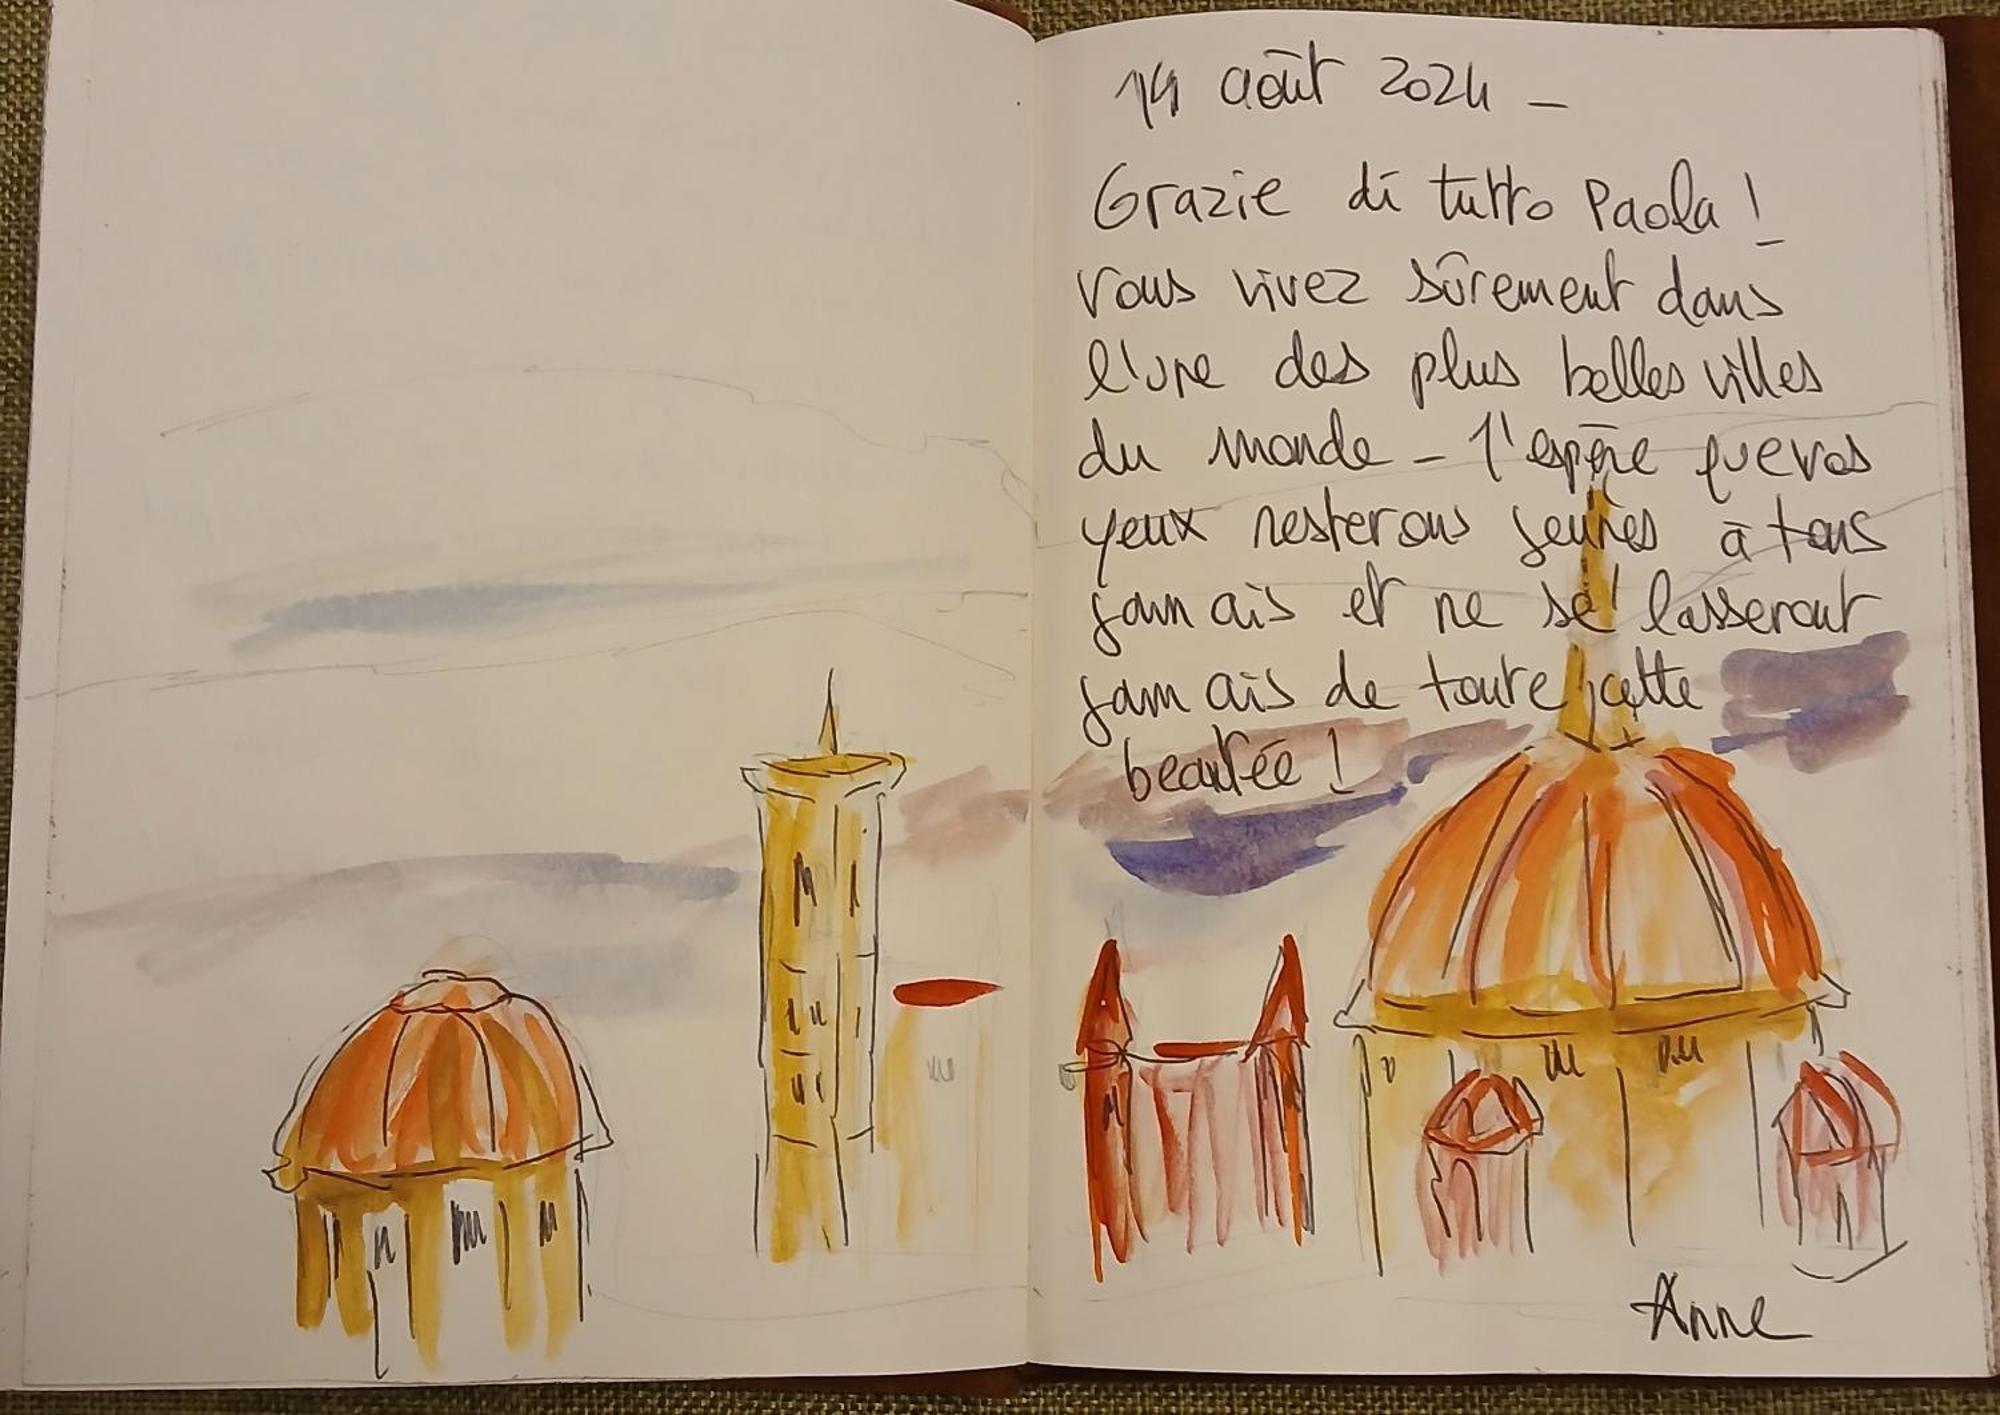 14 août 2024 -
Grazie di tutto Paola !
Vous vivez sûrement dans
l'une des plus belles villes
du monde - J'espère que vos
yeux resterons jeunes à tous
jamais et ne se lasseront
jamais de toute cette
beautée !
Anne